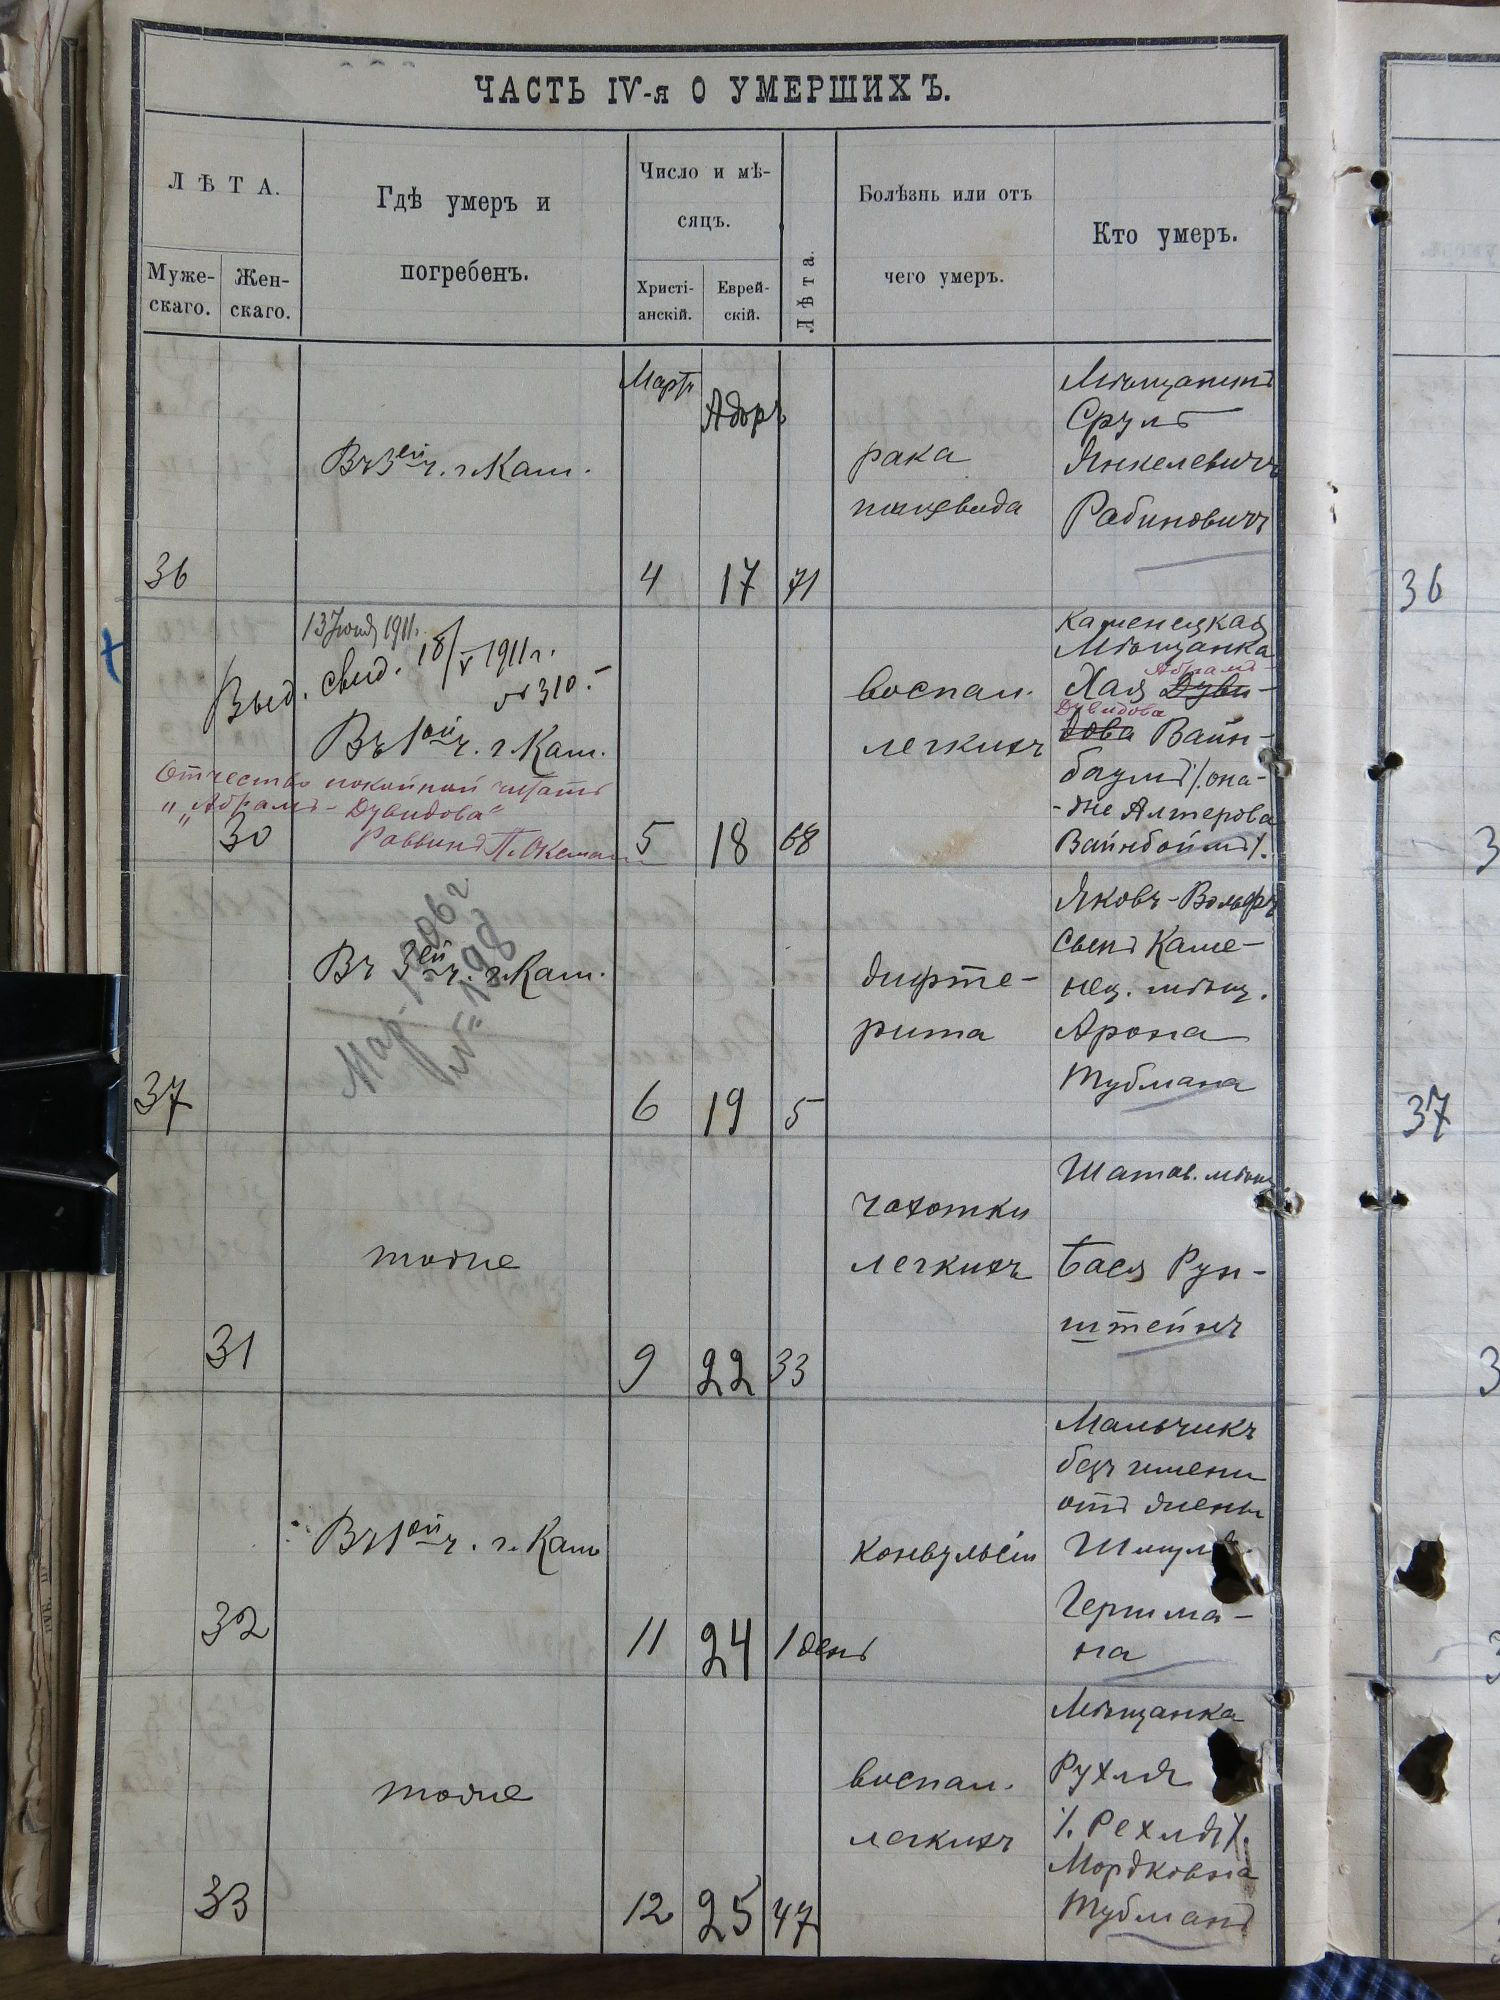 ЧАСТЬ IV-я О УМЕРШИХЪ.
ЛѢТА.
Муже-
скаго.
Жен-
скаго.
Гдѣ умеръ и
погребенъ.
Число и мѣ-
сяцъ.
Христі-
анскій.
Еврей-
скій.
Лѣта.
Болѣзнь или отъ
чего умеръ.
Кто умеръ.
Мартъ
Адоръ
36
Въ 3ей ч. г. Кам.
4
17
71
рака
пищевода
Мѣщанинъ
Сруль
Янкелевичъ
Рабиновичъ
36
13 Іюня 1911 г.
Выд. свид. 18/V 1911 г.
№ 310.
Въ 1ой ч. г. Кам.
Отчество покойной читать
"Абрамъ-Дувидова"
Раввинъ
30
5
18
68
воспал.
легкихъ
Каменецкая
Мѣщанка
Абрамъ-
Хая Дуви-
Дувидова
дова Вайн-
баумъ /. она-
-же Алтерова
Вайнбоймъ /.
3
Въ 3ей ч. г. Кам.
37
6
19
5
дифте-
рита
Яковъ-Вольфъ
сынъ Каме-
нец. мѣщ.
Арона
Тубмана
37
тоже
31
9
22
33
чахотки
легкихъ
Шатов. мѣщ.
Бася Рун-
штейнъ
3
Въ 1ой ч. г. Кам
32
11
24
1 день
конвульсіи
Мальчикъ
безъ имени
отъ жены
Шмуля
Гершма-
на
3
тоже
33
12
25
47
воспал.
легкихъ
Мѣщанка
Рухля
/. Рехля /.
Мордковна
Тубманъ